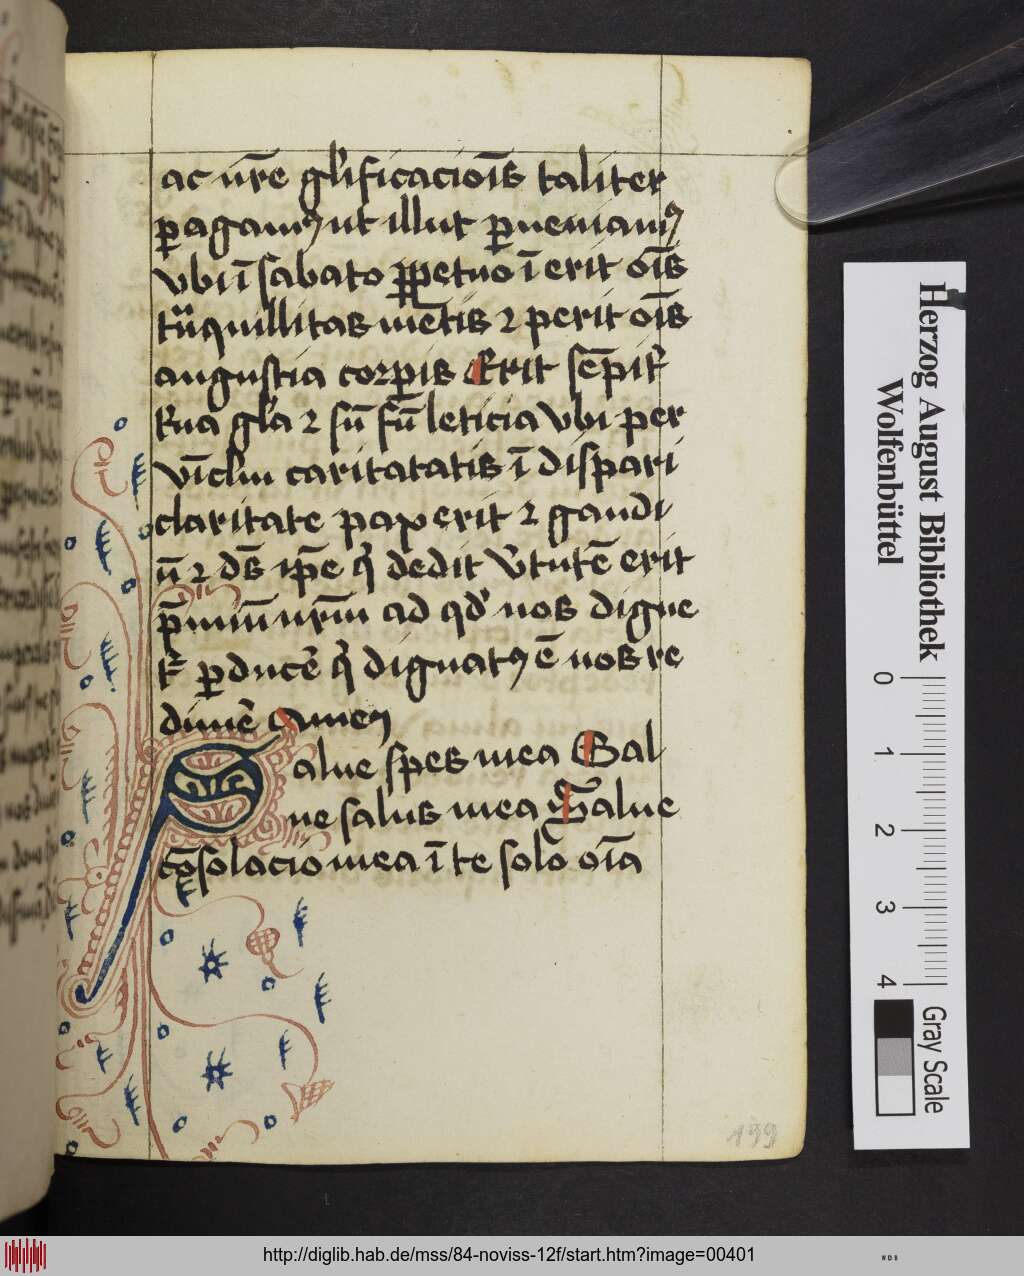 ac nr̄e gl'ificacioīs taliter
ꝑagamꝰ ut illuc ꝑueniamꝰ
vbi ī sabato ꝑpetuo ī erit oīs
tūquillitas mētis ⁊ perit oīs
angustia corꝑis Erit sēpit'
rna gl'a ⁊ sū sū leticia vbi per
vīclm caritatatis ī dispari
claritate pax erit ⁊ gaudi
ū ⁊ dn̄s ip̄e qͥ dedit v'tutē erit
p̄miū nr̄m ad qd' nos digne
t' ꝑducē qͥ dignatꝰ ē nos re
dimē Amen
Salue spes mea Sal
ue salus mea Salue
cōsolacio mea ī te solo oīa
199
Herzog August Bibliothek
Wolfenbüttel
0 1 2 3 4
Gray Scale
http://diglib.hab.de/mss/84-noviss-12f/start.htm?image=00401
WDB